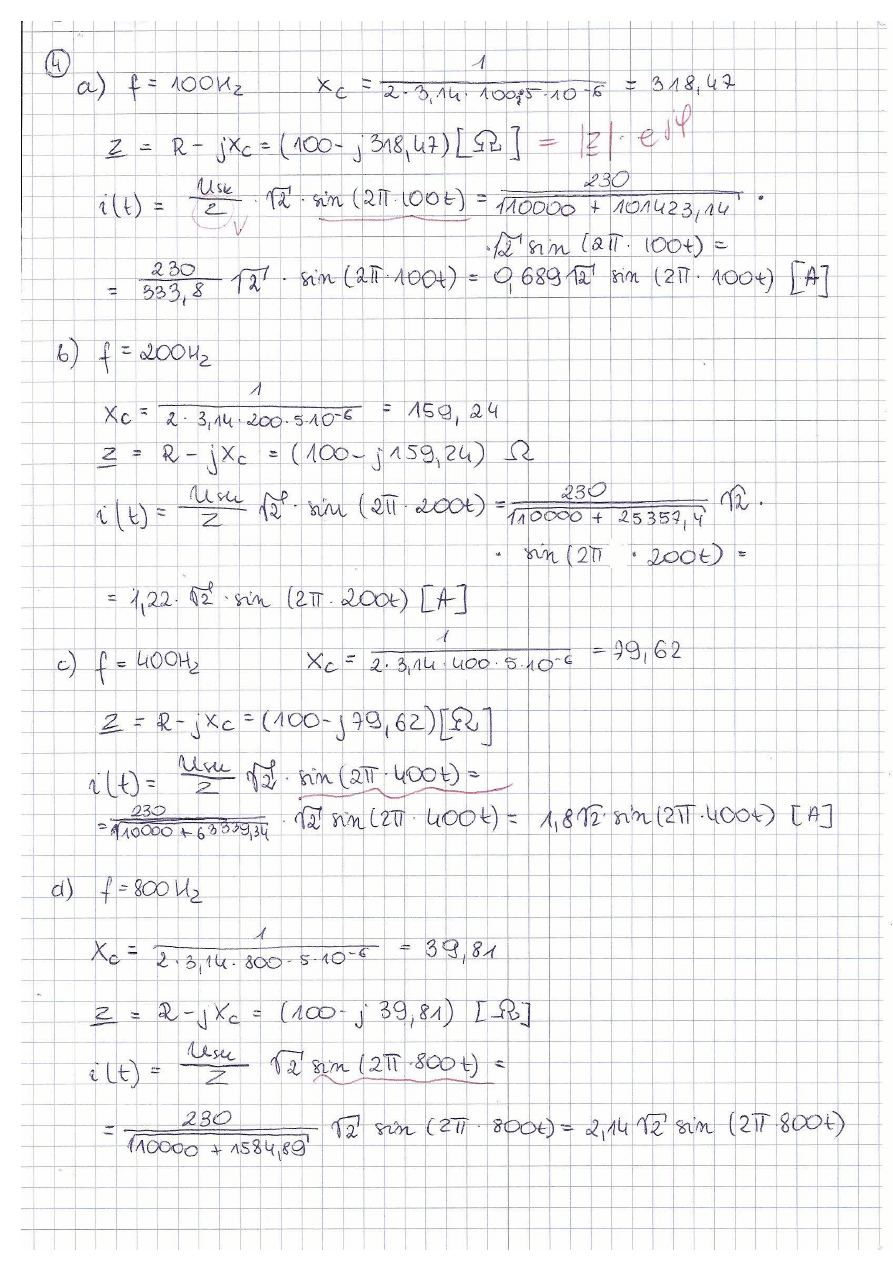 ④
a) f = 100Hz   Xc = 1 / (2·3,14·100·5·10⁻⁶) = 318,47
Z = R - jXc = (100 - j318,47) [Ω] = |Z|·e^jφ
i(t) = Usk/Z · √2 · sin(2π·100t) = 230 / √(10000 + 101423,14) ·
·√2 sin(2π·100t) =
= 230/333,8 √2 · sin(2π·100t) = 0,689√2 sin(2π·100t) [A]
b) f = 200Hz
Xc = 1 / (2·3,14·200·5·10⁻⁶) = 159,24
Z = R - jXc = (100 - j159,24) Ω
i(t) = Usk/Z √2 · sin(2π·200t) = 230 / √(10000 + 25357,4) √2 ·
· sin(2π · 200t) =
= 1,22·√2 · sin(2π·200t) [A]
c) f = 400Hz   Xc = 1 / (2·3,14·400·5·10⁻⁶) = 79,62
Z = R - jXc = (100 - j79,62) [Ω]
i(t) = Usk/Z √2 · sin(2π·400t) =
= 230 / √(10000 + 63339,34) · √2 sin(2π·400t) = 1,8√2·sin(2π·400t) [A]
d) f = 800Hz
Xc = 1 / (2·3,14·800·5·10⁻⁶) = 39,81
Z = R - jXc = (100 - j 39,81) [Ω]
i(t) = Usk/Z √2 sin(2π·800t) =
= 230 / √(10000 + 1584,89) √2 sin(2π·800t) = 2,14√2 sin(2π 800t)